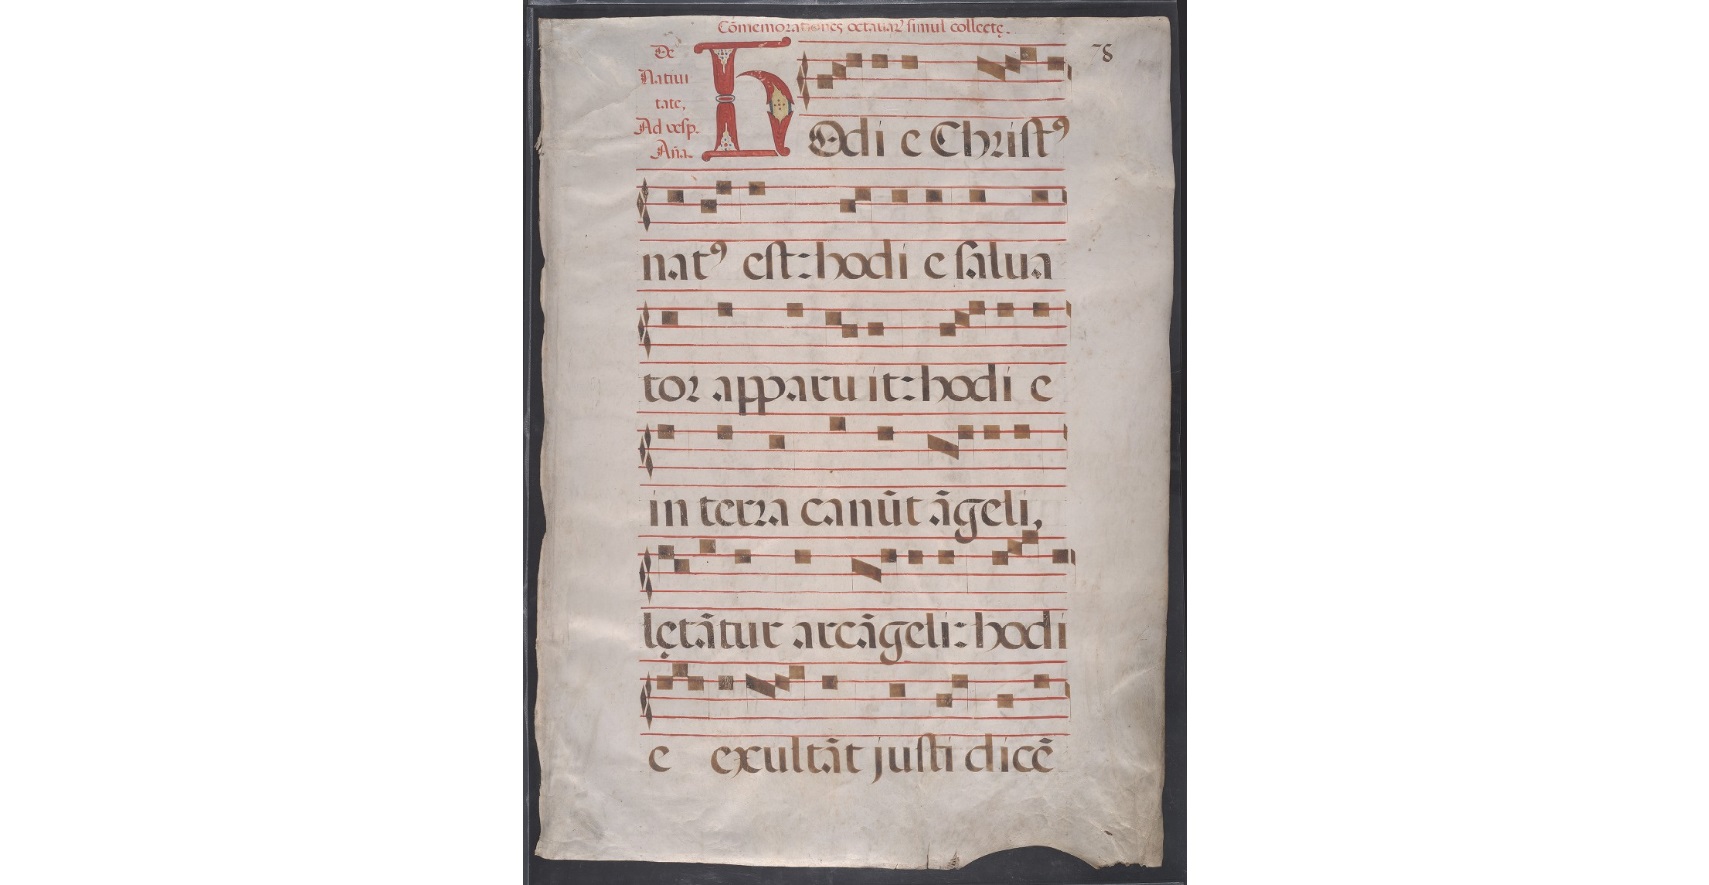 Cõmemorationes octauarꝝ simul collectę.
De
Natiui
tate,
Ad vesp.
Añã.
78
HOdi e Christꝰ
natꝰ est: hodi e salua
tor apparu it: hodi e
in terra canũt ãgeli,
lętãtur arcãgeli: hodi
e exultãt justi dicẽ